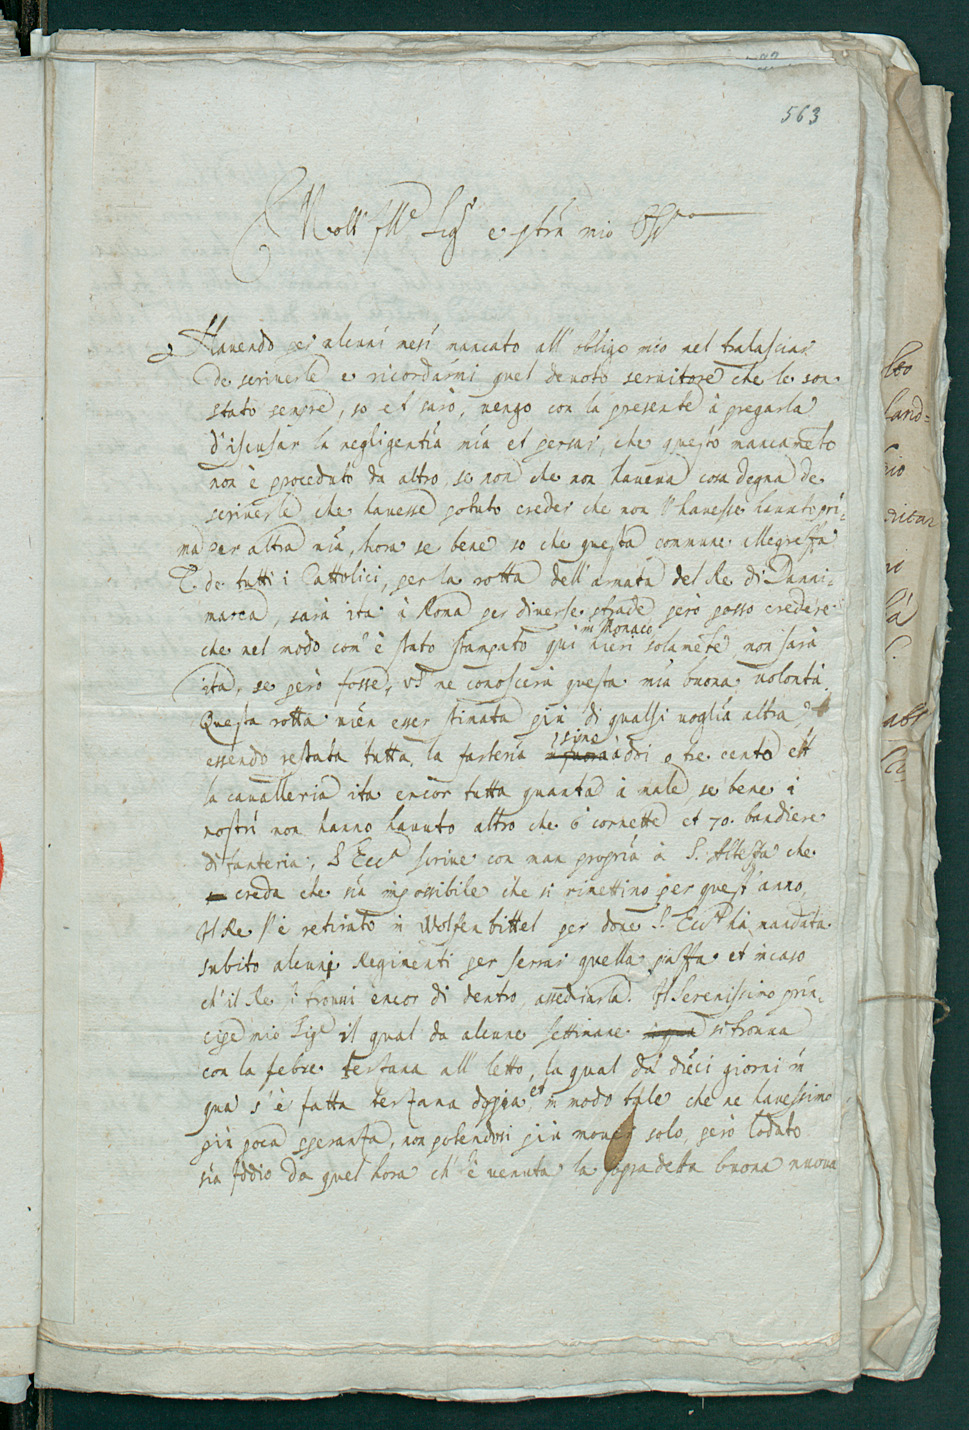 563
Moll' Ill.e Sig.r e p̃trõ mio Oss.mo
Hauendo per alcuni mesi mancato all' obligo mio nel tralasciar
de scriuerle e ricordarmi quel deuoto seruitore che le son
stato sempre, so et sarò, uengo con la presente à pregarla
d'iscusar la negligentia mia et persar, che questo mancamẽto
non è proceduto da altro, se non che non haueua cosa degna de
scriuerle che hauesse potuto creder che non l'hauesse hauuto pri-
ma per altra uia, hora se bene so che questa commune allegrezza
de tutti i Cattolici, per la rotta dell' armata del Re di Danni-
marca, sarà ita à Roma per diuerse strade però posso credere
che nel modo com' è stato stampato qui in Monaco hieri solamẽte non sarà
ita, se però fosse, VS ne conoscerà questa mia buona uolontà.
Questa rotta uien esser stimata più di qualsi uoglia altra,
essendo restata tutta la fanteria sine à doi o tre cento et
la caualleria ita encor tutta quanta à male, se bene i
nostri non hanno hauuto altro che 6 cornette et 70. bandiere
di fanteria, S. Ecc.a scriue con man propria à S. Altezza che
creda che sia impossibile che si rimettino per quest' anno,
Il Re s'è retirato in Wolfenbittel per doue S. Ecc.a hà mandata
subito alcuni Regimenti per serrar quella piazza et in caso
ch' il Re si troui encor di dentro, assediarla. Il Serenissimo prin-
cipe mio Sig.r il qual da alcune settimane si trouua
con la febre terzana all' letto, la qual da dieci giorni in
quà s'è fatta terzana doppia, et in modo tale che ne hauessimo
più poca speranza, non potendosi più mouer solo, però lodato
sia Iddio da quel hora ch' è uenuta la sopradetta buona nuoua